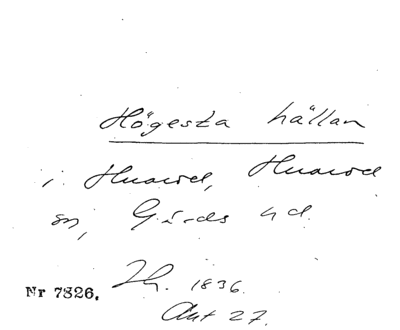 Högesta hällan
i Huaröd, Huaröd
sn, Gärds hd.
Nr 7826. 1836.
Akt 27.